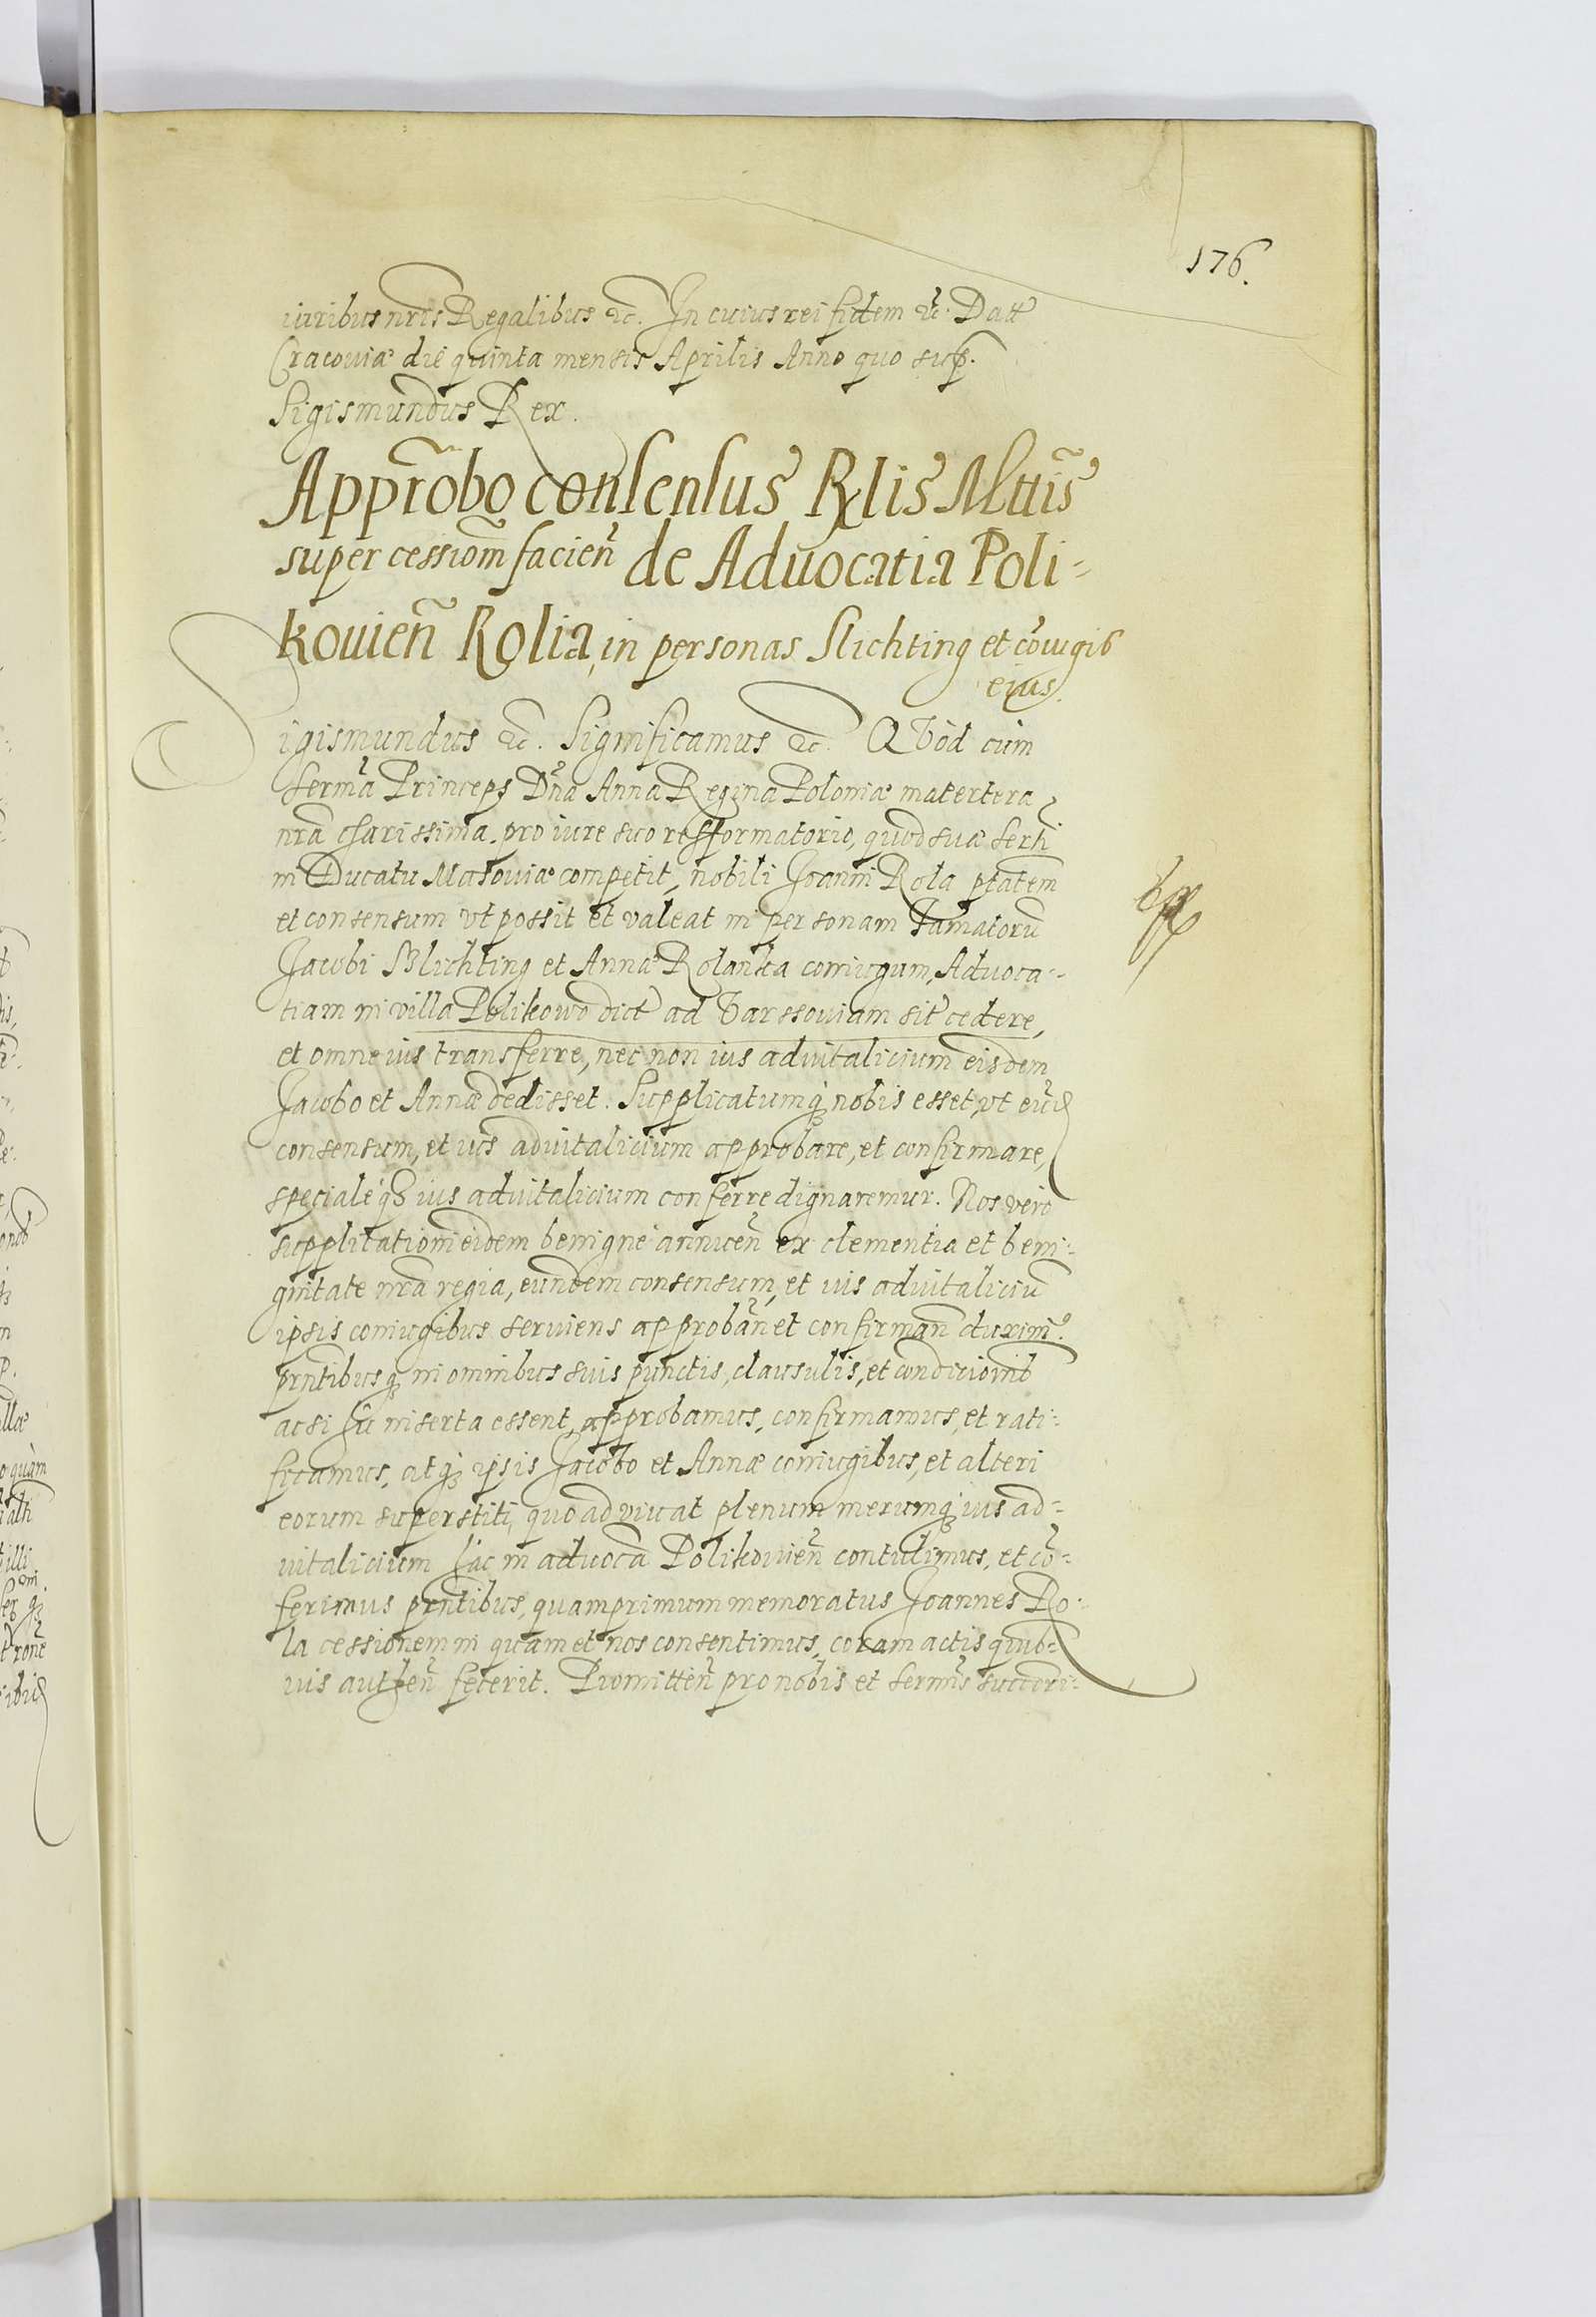 176.
iuribus nris Regalibus etc. In cuius rei fidem etc. Datt
Cracouiæ die quinta mensis Aprilis Anno quo sup.
Sigismundus Rex.
Approbo consensus Rlis Mttis
super cessiom facien de Aduocatia Poli-
kouien Rolia, in personas Slichting et coiugib
eius.
Sigismundus etc. Significamus etc. QVod cum
Serma Princeps Dna Anna Regina Poloniæ matertera
nra charissima, pro iure suo refformatorio, quod suæ Serti
in Ducatu Masouiæ competit, nobili Joanni Rola ptatem
et consensum vt possit et valeat in personam famatorũ
Jacobi Slichting et Annæ Rolanka coniugum, Aduoca-
tiam in villa Polikowo dict ad Varssouiam sit cedere,
et omne ius transferre, nec non ius aduitalicium eisdem
Jacobo et Annæ dedisset. Supplicatumq nobis esset, vt eund
consensum, et ius aduitalicium approbare, et confirmare,
specialeq ius aduitalicium conferre dignaremur. Nos vero
supplicationi eidem benigne annuen ex clementia et beni-
gnitate nra regia, eundem consensum, et ius aduitaliciũ
ipsis coniugibus seruiens approban et confirman duxim9.
prntibusq in omnibus suis punctis, clausulis, et condicionib
ac si hic inserta essent, approbamus, confirmamus, et rati-
ficamus, atq ipsis Jacobo et Annæ coniugibus, et alteri
eorum superstiti, quoad viuat plenum merumq ius ad-
uitalicium hac in aduoca Polikouien contulimus, et cõ-
ferimus prntibus, quamprimum memoratus Joannes Ro-
la cessionem in quam et nos consentimus, coram actis quib-
uis authen fecerit. Promitten pro nobis et sermis succori-